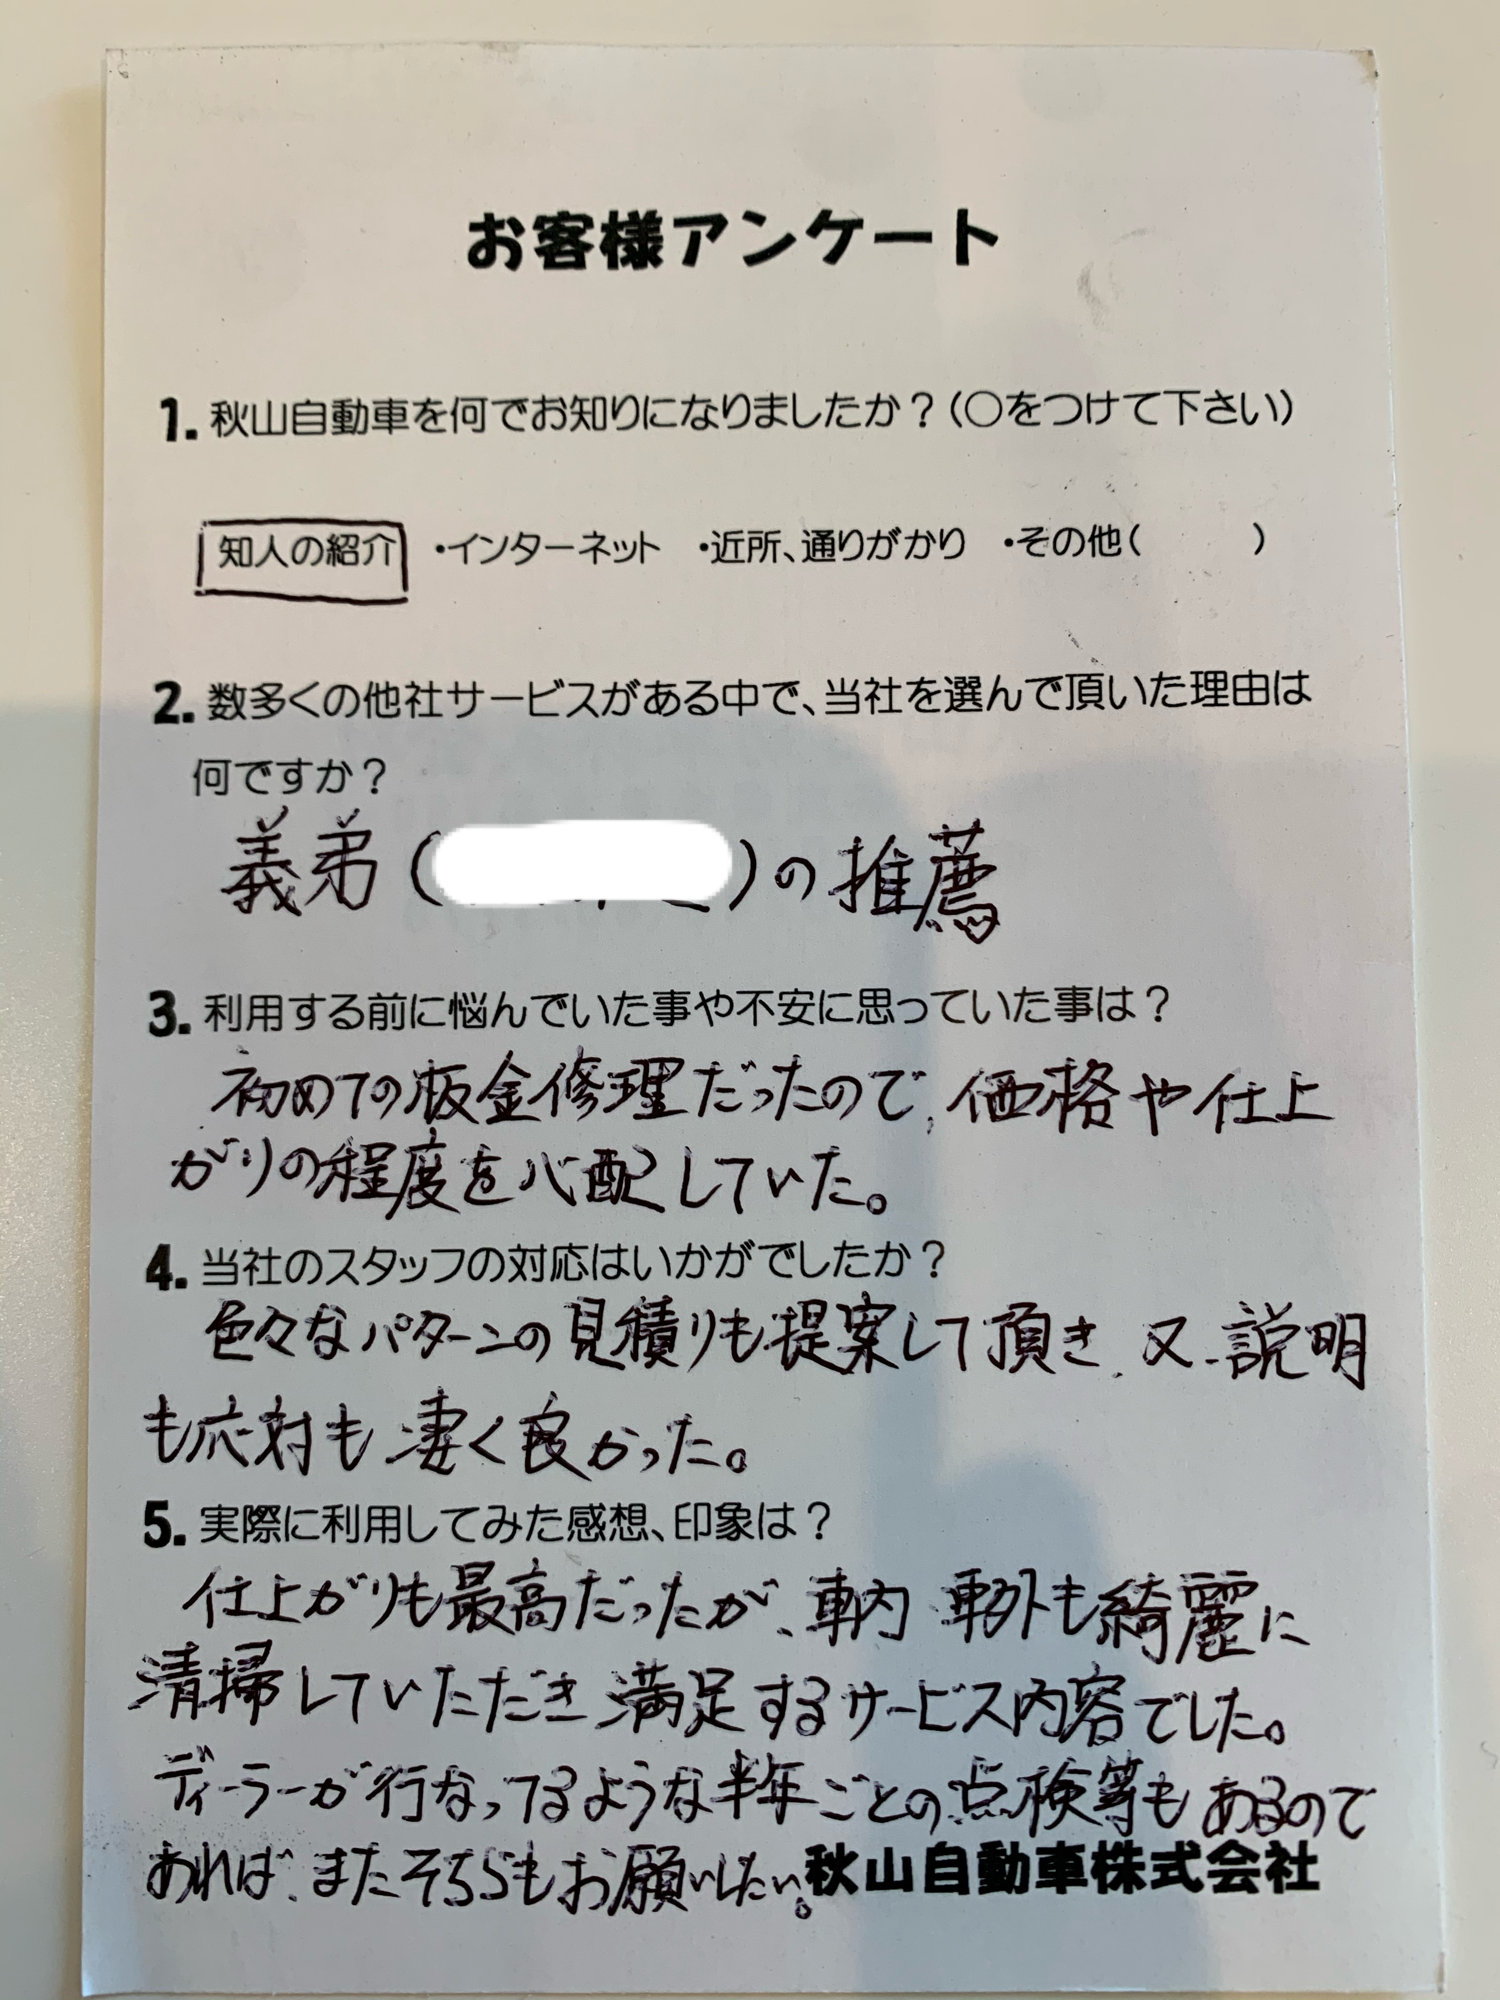 お客様アンケート
1. 秋山自動車を何でお知りになりましたか？（○をつけて下さい）
知人の紹介 ・インターネット ・近所、通りがかり ・その他（ ）
2. 数多くの他社サービスがある中で、当社を選んで頂いた理由は
何ですか？
義弟（ ）の推薦
3. 利用する前に悩んでいた事や不安に思っていた事は？
初めての板金修理だったので、価格や仕上
がりの程度を心配していた。
4. 当社のスタッフの対応はいかがでしたか？
色々なパターンの見積りも提案して頂き、又、説明
も応対も凄く良かった。
5. 実際に利用してみた感想、印象は？
仕上がりも最高だったが、車内 車外も綺麗に
清掃していただき満足するサービス内容でした。
ディーラーが行なってるような半年ごとの点検等もあるので
あれば、またそちらもお願いしたい。
秋山自動車株式会社